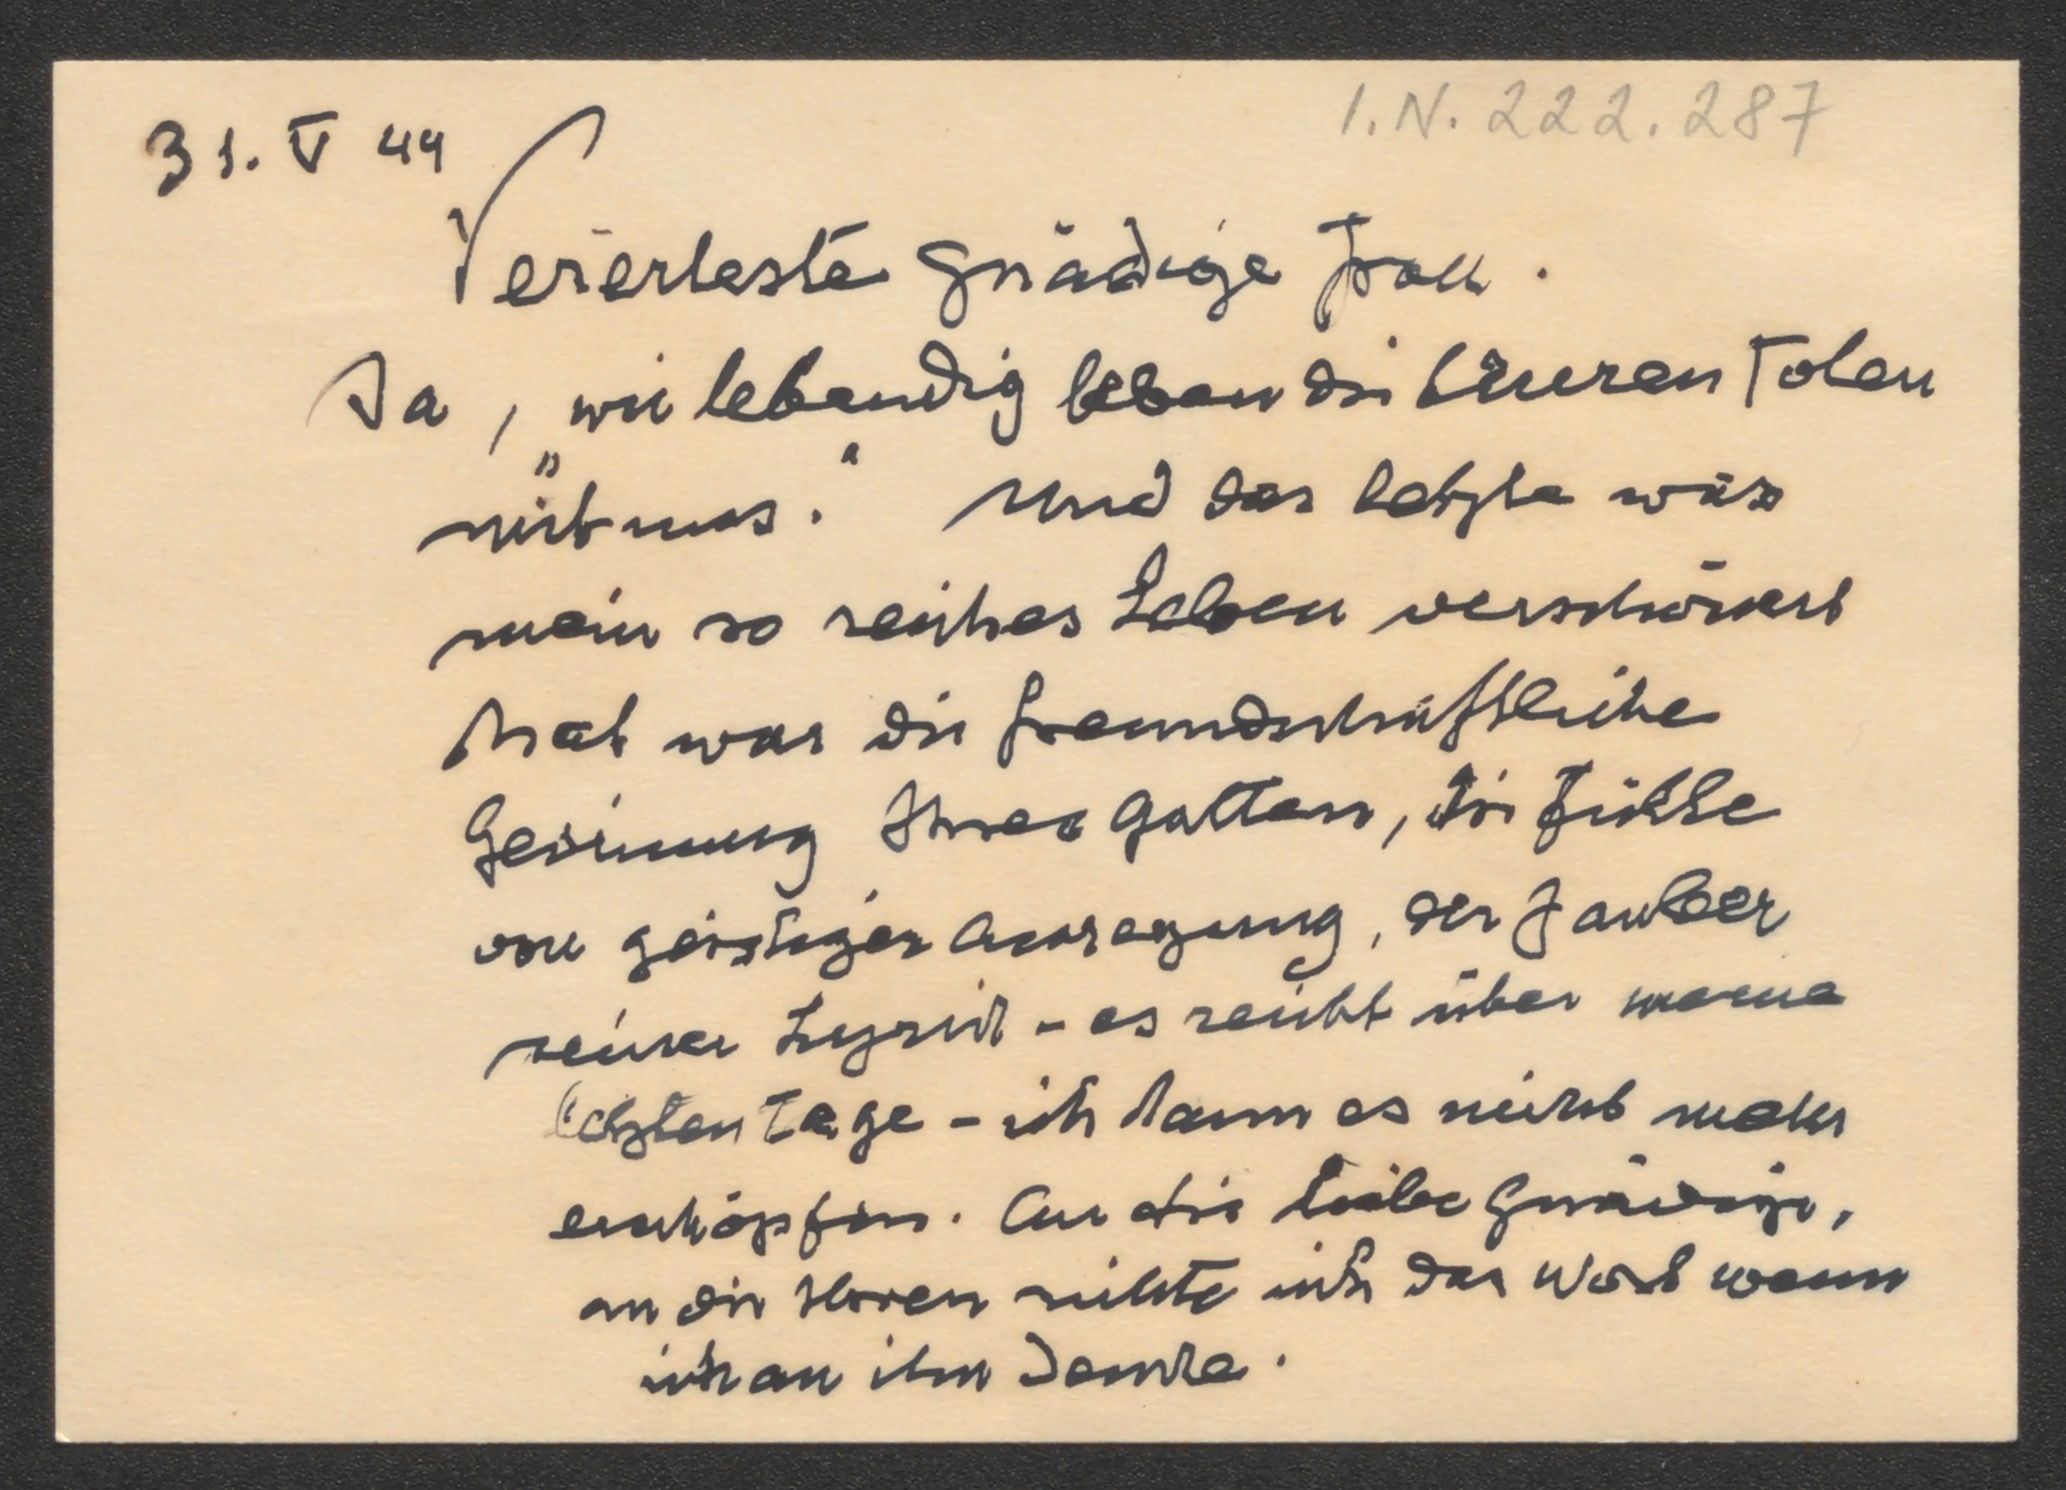 I.N. 222.287
31. V 44
Vererteste gnädige Frau.
Ja, wie lebendig leben die teueren Toten
mit uns." Und das letzte was
mein so reiches Leben verschönert
hat war die freundschaftliche
Gesinnung Ihres Gatten, die Fülle
von geistiger Anregung, der Zauber
seiner Lyrik - es reicht über meine
letzten Tage - ich kann es nicht mehr
erschöpfen. An die liebe Gnädige,
an die Horen richte ich das Wort wenn
ich an ihn denke.